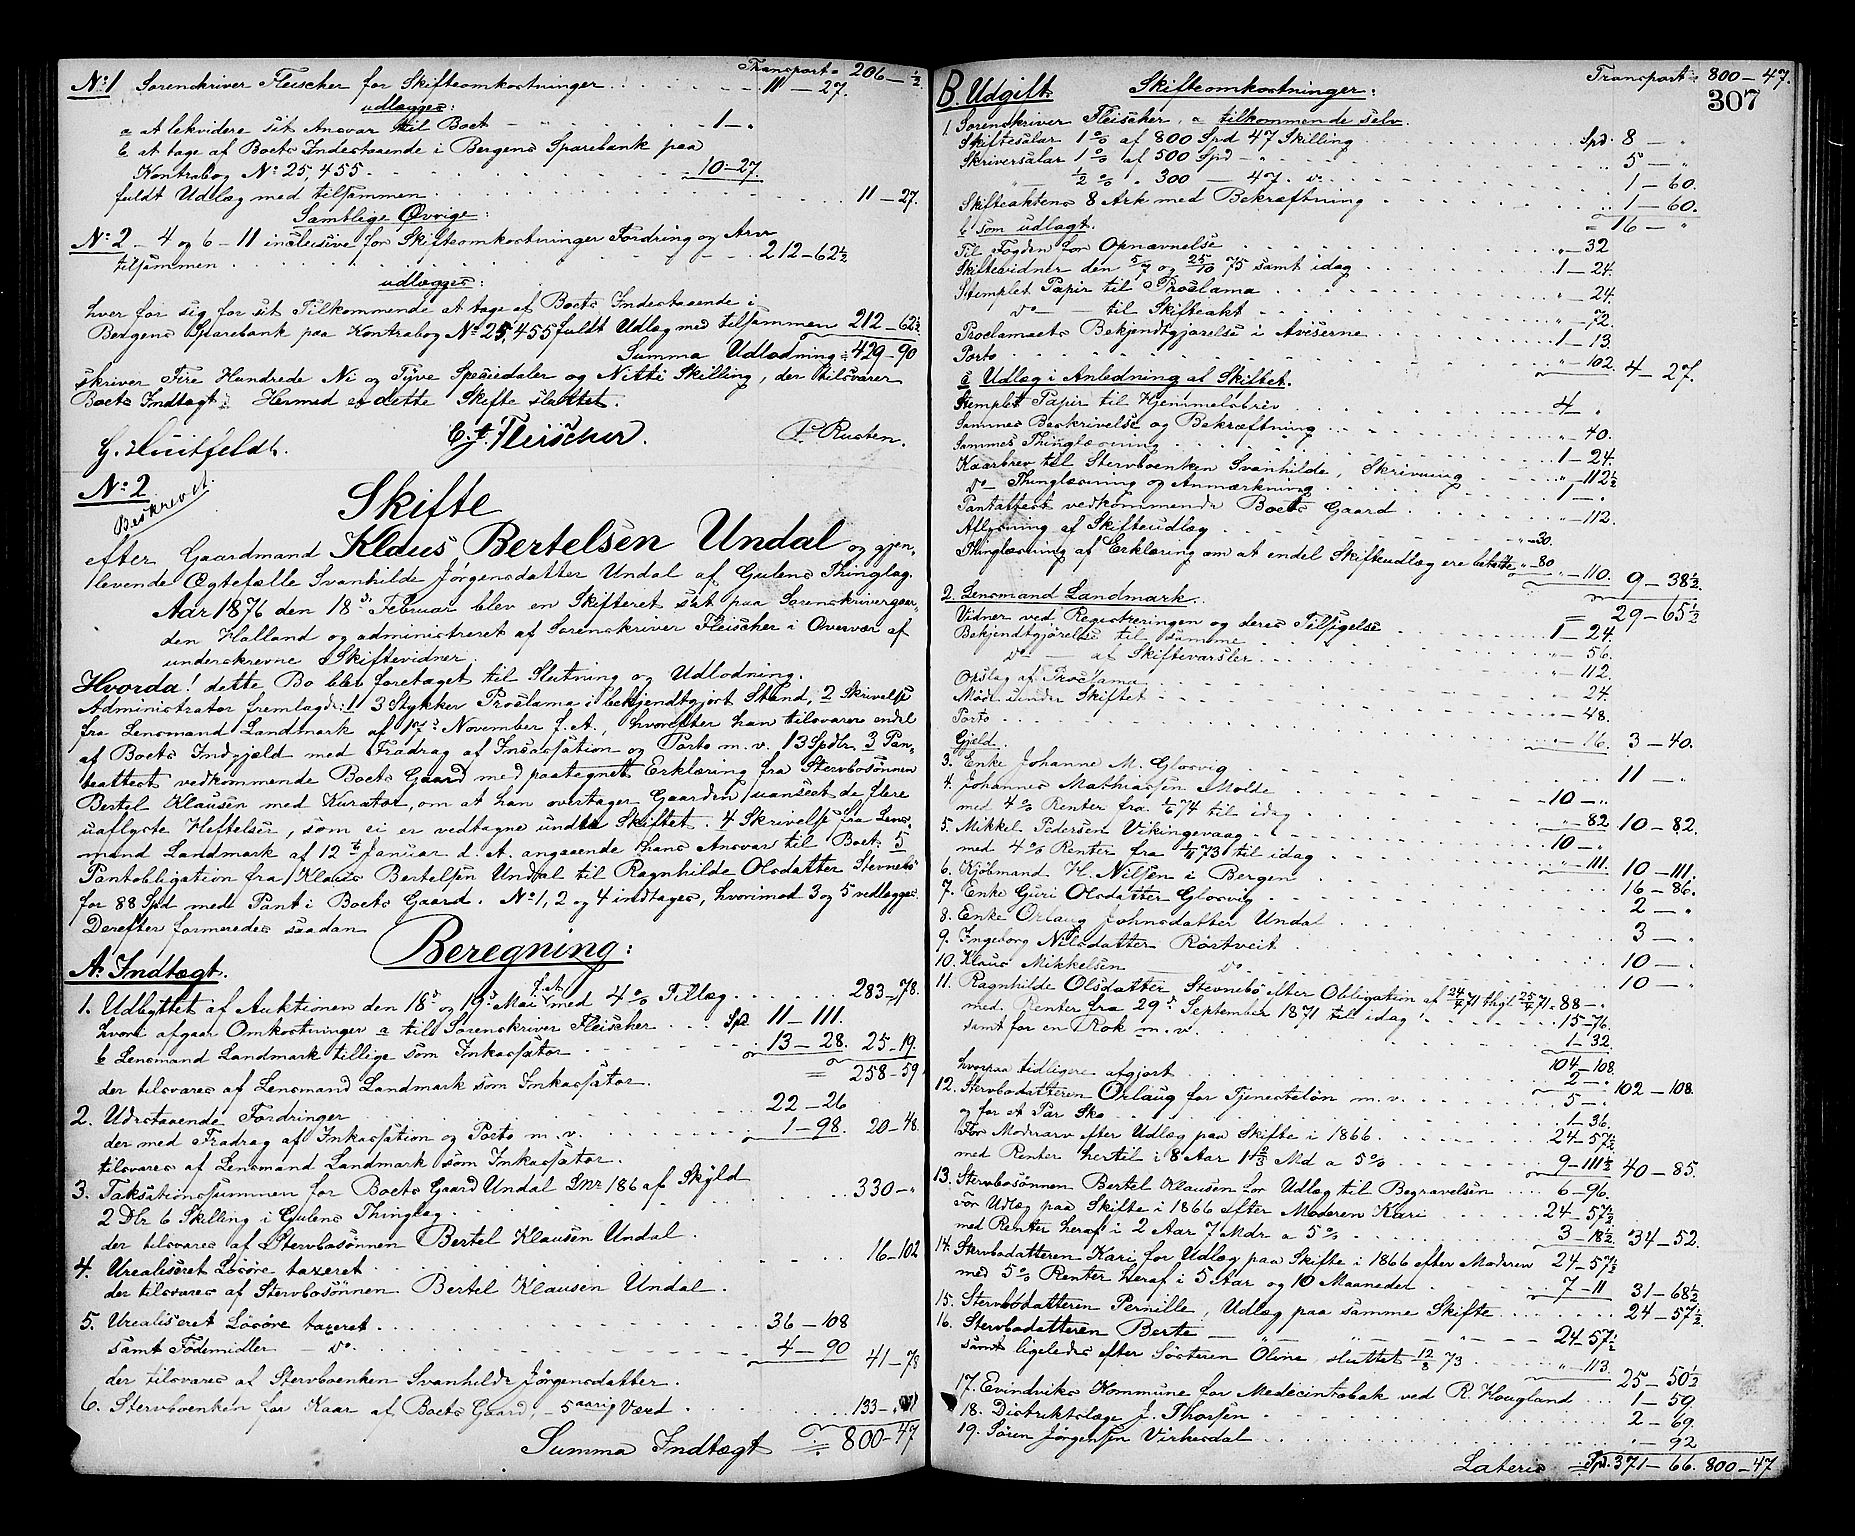 Transport = 206 — ½
No 1 Sorenskriver Fleischer for Skifteomkostninger . . . 11 — 27.
udlægges:
a at lekvidere sit Ansvar til Boet — 1 — „
b at tage af Boets Indestaaende i Bergens Sparebank paa
Kontrabog No 25,455 . . . 10 — 27.
fuldt Udlæg med tilsammen . . . 11 — 27.
Samtlige Øvrige:
No 2 — 4 og 6 — 11 inclusive for Skifteomkostninger Fordring og Arv
tilsammen . . . 212 — 62½
udlægges:
hver for sig for sit Tilkommende at tage af Boets Indestaaende i
Bergens Sparebank paa Kontrabog No 25,455 fuldt Udlæg med tilsammen 212 — 62½
Summa Udlodning = 429 — 90
skriver Fire Hundrede Ni og Tyve Speciedaler og Nitti Skilling, der tilsvarer
Boets Indtægt. Hermed er dette Skifte sluttet.
G. Huitfeldt. C. f. Fleischer. P. Rusten.
No 2
Beskrevet.
Skifte
efter Gaardmand Klaus Bertelsen Undal og gjen-
levende Ægtefælle Svanhilde Jørgensdatter Undal af Gulens Thinglag.
Aar 1876 den 18de Februar blev en Skifteret sat paa Sorenskrivergaar-
den Halland og administreret af Sorenskriver Fleischer i Overvær af
underskrevne Skiftevidner.
Hvorda! dette Bo blev foretaget til Slutning og Udlodning.
Administrator fremlagde: 1 3 Stykker Proclama i bekjendtgjort Stand, 2 Skrivelse
fra Lensmand Landmark af 17de November f. A., hvorefter han tilsvarer endel
af Boets Indgjæld med Fradrag af Incassation og Porto m. v. 13 Spdlr, 3 Pan-
teattest vedkommende Boets Gaard med paategnet Erklæring fra Stervbosønnen
Bertel Klausen med Kurator, om at han overtager Gaarden uanseet de flere
uaflyste Heftelser, som ei er vedtagne under Skiftet. 4 Skrivelse fra Lens-
mand Landmark af 12te Januar d. A. angaaende hans Ansvar til Boet. 5
Pantobligation fra Klaus Bertelsen Undal til Ragnhilde Olsdatter Stevnebø
for 88 Spd med Pant i Boets Gaard. No 1, 2 og 4 indtages, hvorimod 3 og 5 vedlægges.
Derefter formeredes saadan
Beregning:
A. Indtægt.
1. Udbyttet af Auktionen den 18de og 19de Mai f. A. med 4 % Tillæg . . . 283 — 78.
hvori afgaar Omkostninger a til Sorenskriver Fleischer . . . Spd 11 — 111.
b Lensmand Landmark tillige som Inkassator . . . 13 — 28. 25 — 19.
der tilsvares af Lensmand Landmark som Inkassator. = 258 — 59
2. Udestaaende Fordringer . . . 22 — 26
der med Fradrag af Inkassation og Porto m. v. . . . 1 — 98. 20 — 48.
tilsvares af Lensmand Landmark som Inkassator.
3. Taksationssummen for Boets Gaard Undal Lnr 186 af Skyld
2 Dlr 6 Skilling i Gulens Thinglag . . . 330 — „
der tilsvares af Stervbosønnen Bertel Klausen Undal.
4. Urealiseret Løsøre taxeret . . . 16 — 102
der tilsvares af Stervbosønnen Bertel Klausen Undal.
5. Urealiseret Løsøre taxeret . . . 36 — 108
samt Fødemidler — do . . . 4 — 90 41 — 78
der tilsvares af Stervboenken Svanhilde Jørgensdatter.
6. Stervboenken for Kaar af Boets Gaard, — 5 aarig Værd . . . 133 —
Summa Indtægt = 800 — 47
Transport = 800 — 47.
307
B. Udgift Skifteomkostninger:
1. Sorenskriver Fleischer, a tilkommende selv.
Skiftesalar 1 % af 800 Spd 47 Skilling . . . Spd. 8 — „
Skriversalar 1 % af 500 Spd — „ . . . 5 — „
½ % „ 300 — 47. do . . . 1 — 60.
Skifteaktens 8 Ark med Bekræftning . . . 1 — 60.
b som udlagt. = 16 — „
Til Fogden for Opnævnelse . . . „ — 32
Skiftevidner den 5/7 og 25/10 75 samt idag . . . 1 — 24.
Stemplet Papir til Proclama . . . „ — 24.
do — til Skifteakt . . . „ — 72.
Proclamaets Bekjendtgjørelse i Aviserne . . . 1 — 13.
Porto . . . „ — 102. 4 — 27.
c Udlæg i Anledning af Skiftet.
Stemplet Papir til Hjemmelsbrev . . . 4 — „
Sammes Beskrivelse og Bekræftning . . . „ — 40.
Sammes Thinglæsning . . . 1 — 24.
Kaarbrev til Stervboenken Svanhilde, Skrivning . . . „ — 112½
do — Thinglæsning og Anmærkning . . . 1 — „
Pantattest vedkommende Boets Gaard . . . „ — 112.
Aflysning af Skifteudlæg . . . „ — 30.
Thinglæsning af Erklæring om at endel Skifteudlæg ere betalte „ — 80 „ — 110. 9 — 38½
2. Lensmand Landmark. = 29 — 65½
Vidner ved Registreringen og deres Tilsigelse . . . 1 — 24.
Bekjendtgjørelse til samme . . . „ — 56.
do — af Skiftevarsler . . . „ — 112.
Opslag af Proclama . . . „ — 24.
Møde under Skiftet . . . „ — 48.
Porto . . . „ — 16. 3 — 40.
Gjeld.
3. Enke Johanne M. Glosvig . . . 11 — „
4. Johannes Mathiassen Molde . . . 10 — „
med 4 % Renter fra 74 til idag . . . „ — 82 10 — 82.
5. Mikkel Pedersen Vikingevaag . . . 10 — „
med 4 % Renter fra 73 til idag . . . „ — 111. 10 — 111.
6. Kjøbmand H. Nilsen i Bergen . . . 16 — 86.
7. Enke Guri Olsdatter Glosvig . . . 2 — „
8. Enke Orlaug Johnsdatter Undal . . . 3 — „
9. Ingeborg Nilsdatter Røstveit . . . 10 — „
10. Klaus Mikkelsen — do . . . 10 — „
11. Ragnhilde Olsdatter Stevnebø efter Obligation af 24/4 71 thgl. 25/4 71. 88 — „
med Renter fra 29de September 1871 til idag . . . 15 — 76.
samt for en Rok m. v. . . . 1 — 32.
104 — 108.
hvorpaa tidligere afgjort . . . 2 — „ 102 — 108.
12. Stervbodatteren Orlaug for Tjenesteløn m. v. . . . 5 — „
og for et Par Sko . . . 1 — 36.
For Moderarv efter Udlæg paa Skifte i 1866 . . . 24 — 57½
med Renter hertil i 8 Aar 1⅔ Md a 5 % . . . 9 — 111½ 40 — 85.
13. Stervbosønnen Bertel Klausen for Udlæg til Begravelsen . . . 6 — 96.
For Udlæg paa Skifte i 1866 efter Moderen Kari . . . 24 — 57½
med Renter heraf i 2 Aar 7 Mdr a 5 % . . . 3 — 18½ 34 — 52.
14. Stervbodatteren Kari for Udlæg paa Skifte i 1866 efter Moderen 24 — 57½
med 5 % Renter heraf i 5 Aar og 10 Maaneder . . . 7 — 11 31 — 68½
15. Stervbodatteren Pernille, Udlæg paa samme Skifte . . . 24 — 57½
16. Stervbodatteren Berte — „ — „ — „ 24 — 57½
samt ligeledes efter Søsteren Oline, sluttet 12/8 73 . . . „ — 113. 25 — 50½
17. Evindviks Kommune for Medecintobak ved R. Hougland . . . 1 — 59
18. Distriktslæge J. Thorsen . . . 2 — 69.
19. Søren Jørgensen Virkesdal . . . „ — 92
Lateris = Spd. 371 — 66. 800 — 47